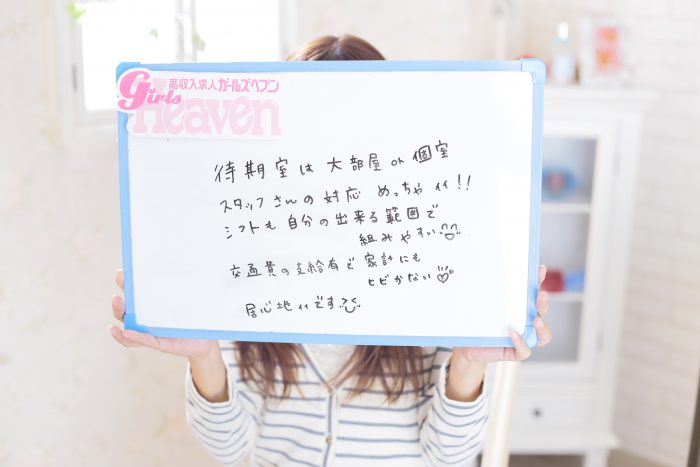 高収入求人ガールズヘブン
Girls Heaven
待期室は 大部屋 or 個室
スタッフさんの対応 めっちゃイイ!!
シフトも自分の出来る範囲で
組みやすい
交通費の支給有で家計にも
ヒビかない
居心地イイです